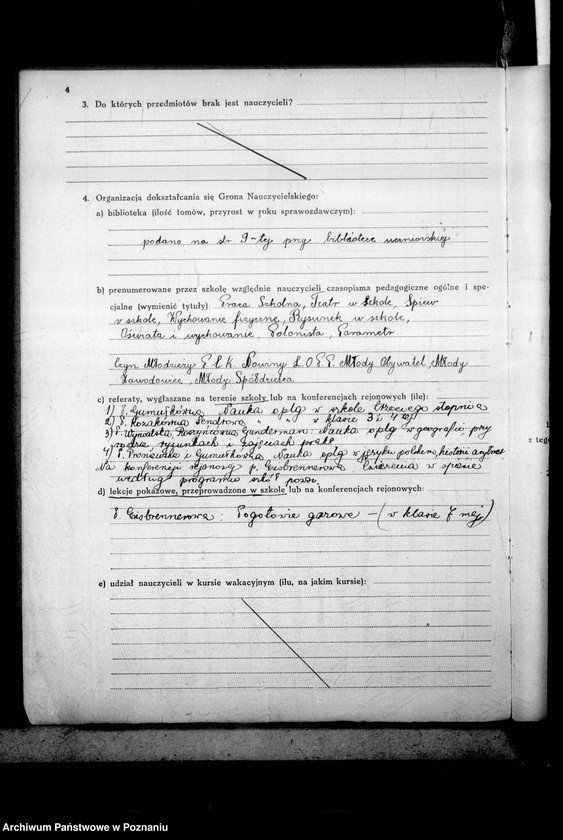 4
3. Do których przedmiotów brak jest nauczycieli?
4. Organizacja dokształcania się Grona Nauczycielskiego:
a) biblioteka (ilość tomów, przyrost w roku sprawozdawczym):
podano na str 9-tej przy bibliotece uczniowskiej
b) prenumerowane przez szkołę względnie nauczycieli czasopisma pedagogiczne ogólne i spe-
cjalne (wymienić tytuły): Praca Szkolna, Teatr w szkole, Śpiew
w szkole, Wychowanie fizyczne, Rysunek w szkole,
Oświata i wychowanie, Polonista, Parametr
Czyn Młodzieży P.C.K. Nowiny L.O.P.P. Młody Obywatel, Młody
Zawodowiec, Młody Spółdzielca
c) referaty, wygłaszane na terenie szkoły lub na konferencjach rejonowych (ile):
1) P. Nauka w szkole trzeciego stopnia
2) P. " " w klasie 3 i 4 ej
3) P. Nauka w geografii przy
rysunkach i zajęciach prakt
4) P. i Nauka w języku polskim, historii
Na konferencji rejonowej p. Eisbrennerowa Ćwiczenia w
według programu szkół powsz.
d) lekcje pokazowe, przeprowadzone w szkole lub na konferencjach rejonowych:
P. Eisbrennerowa: Pogotowie gazowe – (w klasie 7 mej)
e) udział nauczycieli w kursie wakacyjnym (ilu, na jakim kursie):
z tego
Archiwum Państwowe w Poznaniu